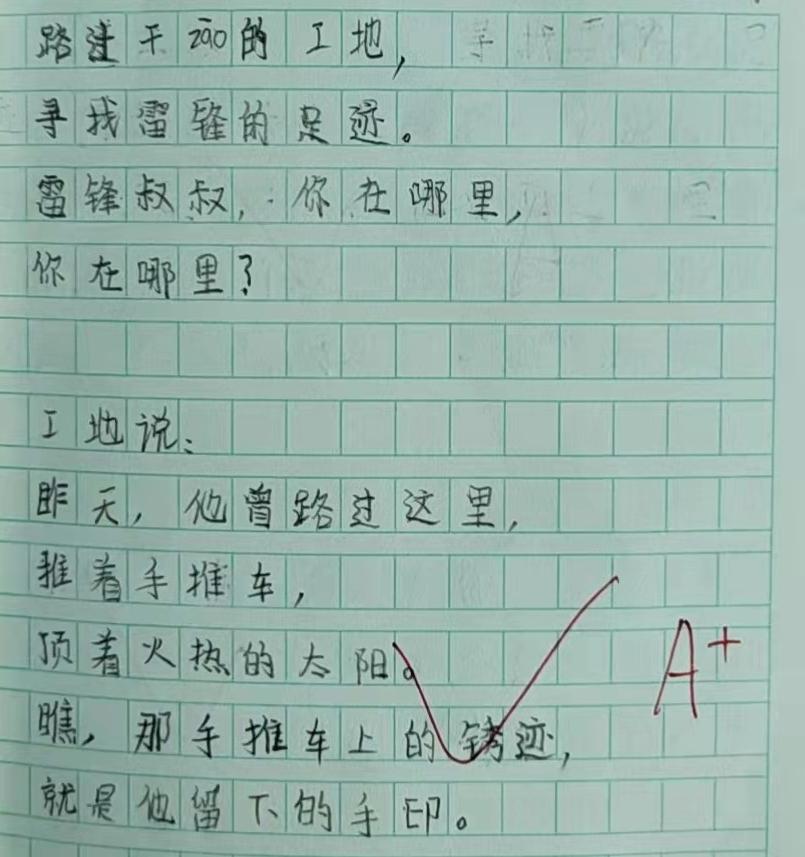 路过干zao的工地,
寻找雷锋的足迹。
雷锋叔叔,你在哪里,
你在哪里?
工地说:
昨天,他曾路过这里,
推着手推车,
顶着火热的太阳。
瞧,那手推车上的锈迹,
就是他留下的手印。
A+